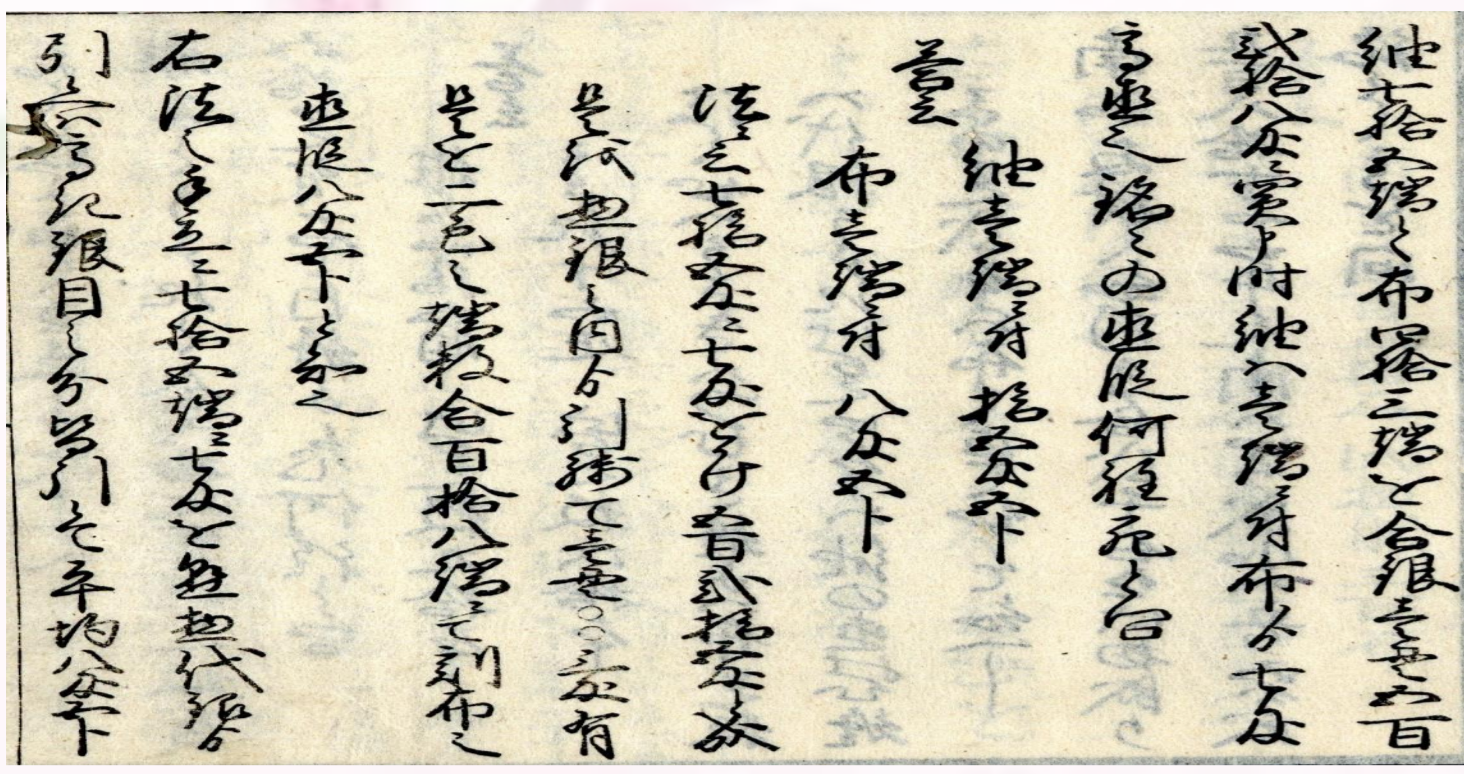 紬七拾五端と布四拾三端を合銀壱貫五百
弐拾八匁ニ買申時紬ハ壱端ニ付布より七匁
高直也銘々の直段何程宛と問
答云
紬壱端ニ付 拾五匁五分
布壱端ニ付 八匁五分
法ニ云七拾五匁ニ七匁をかけ五百弐拾五匁と成
是を惣銀之内より引残て壱貫〇〇三匁有
是を二色之端数合百拾八端ニて割布之
直段八匁五分と知也
右法之手立ニ七拾五端ニ七匁を懸惣代銀より
引ハ高キ銀目之分皆引て平均八匁五分